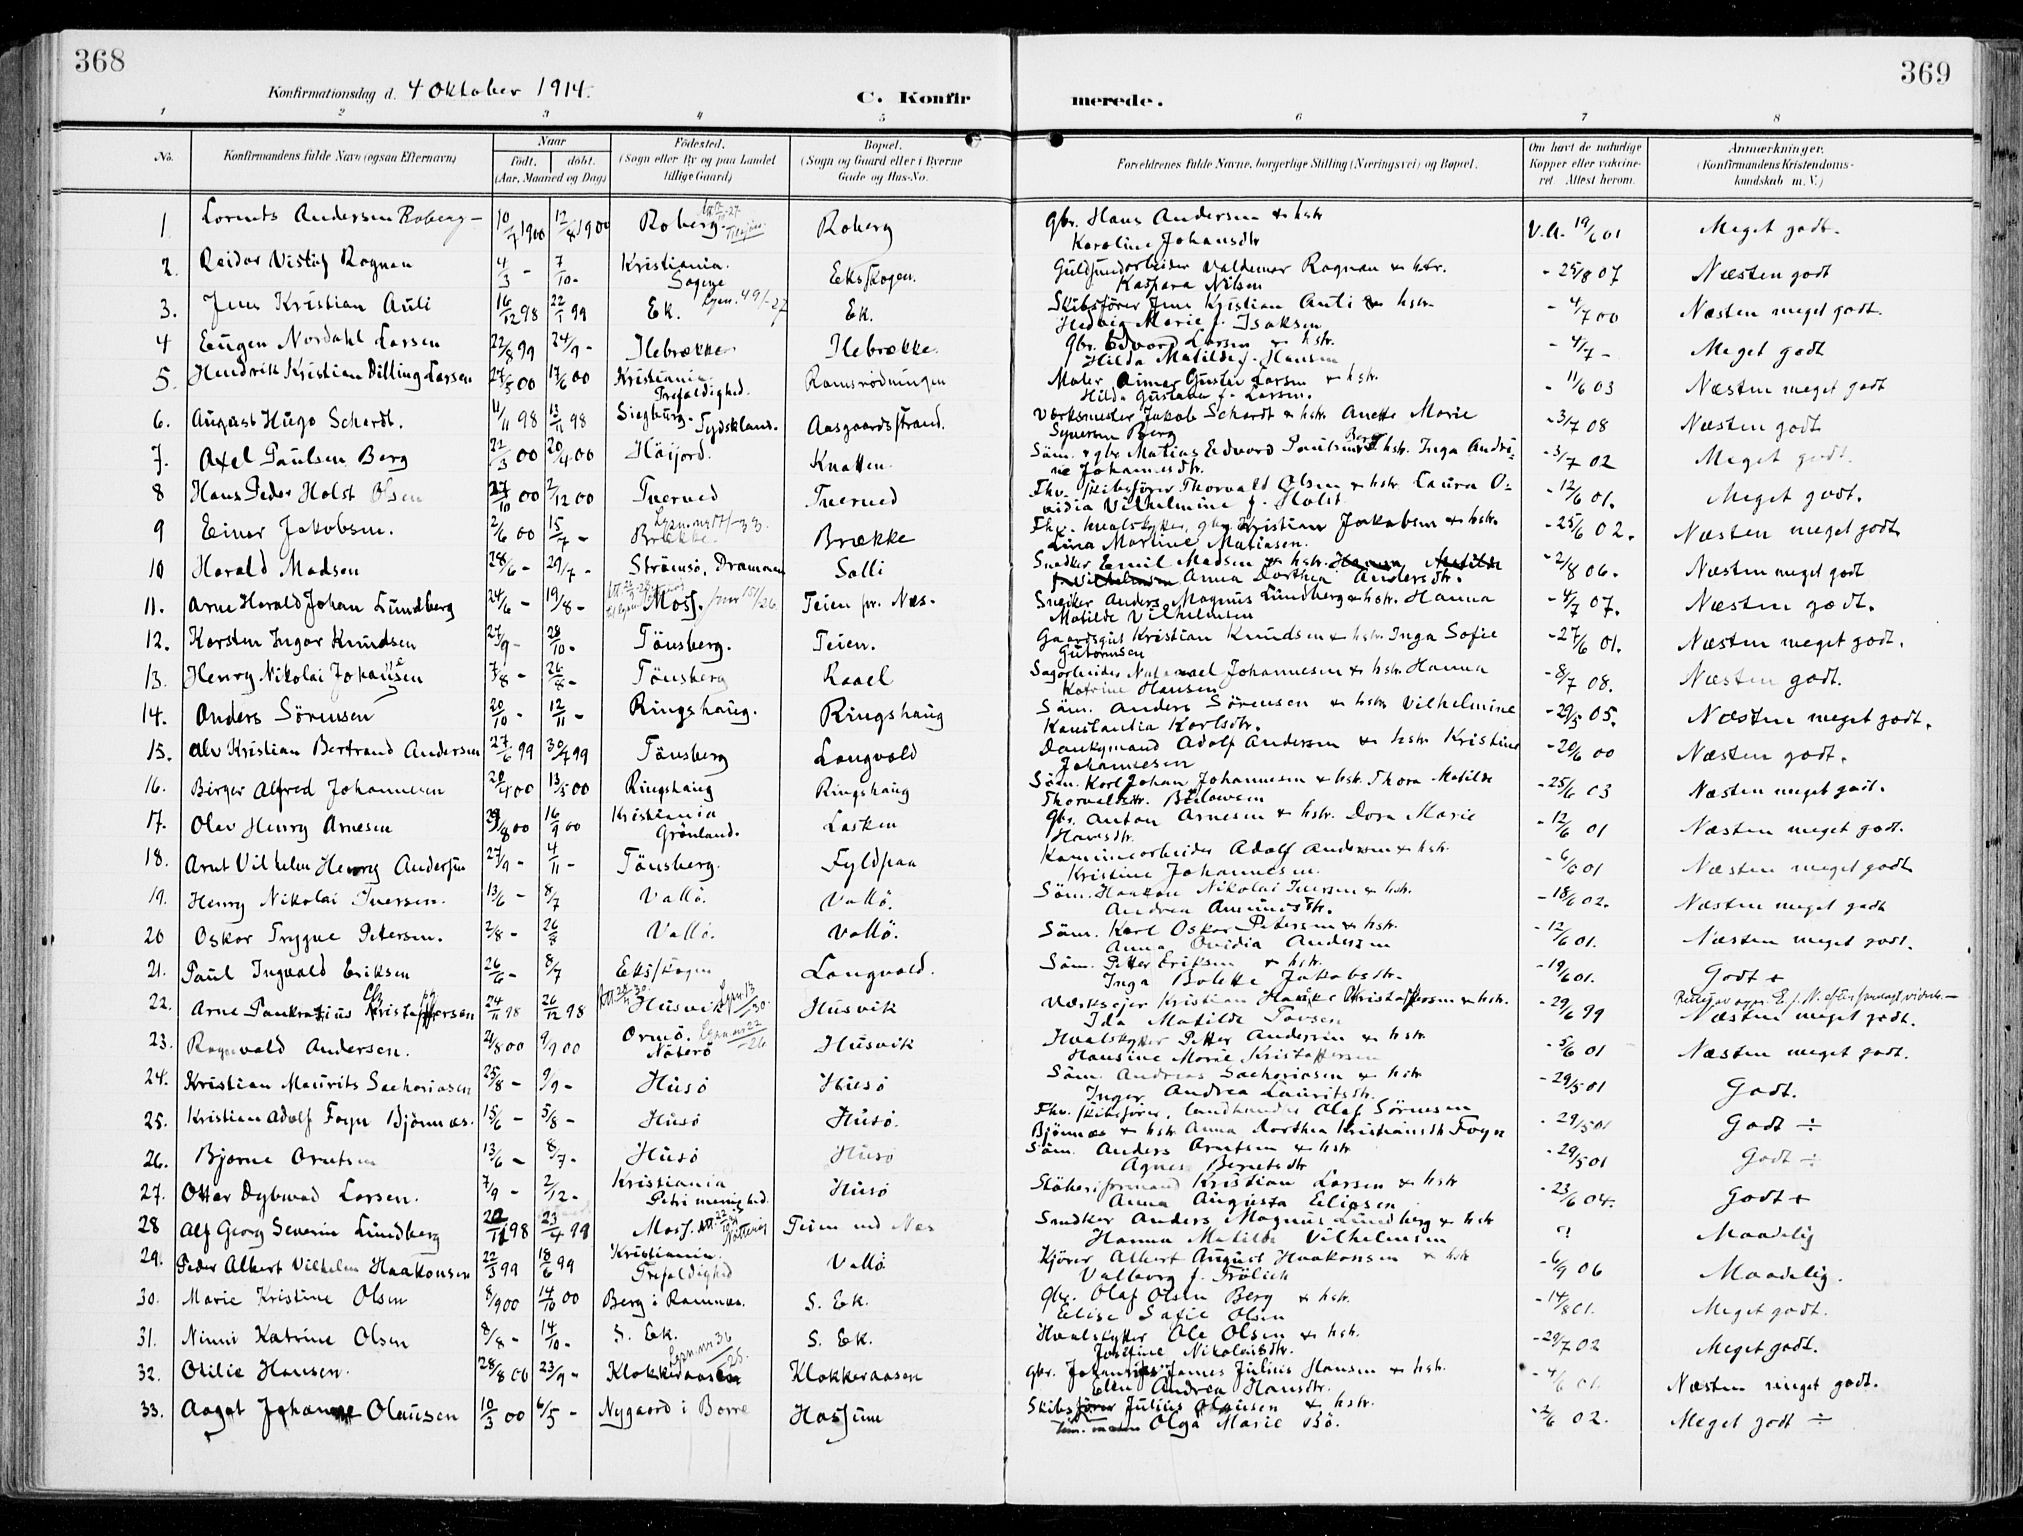 368
369
Konfirmationsdag d. 4 Oktober 1914.
C. Konfirmerede.
1 2 3 4 5 6 7 8
No. Konfirmandens fulde Navn (ogsaa Efternavn) Naar født. døbt. (Aar, Maaned og Dag) Fødested. (Sogn eller By og paa Landet tillige Gaard) Bopæl. (Sogn og Gaard eller i Byerne Gade og Hus-No. Forældrenes fulde Navne, borgerlige Stilling (Næringsvei) og Bopæl. Om havt de naturlige Kopper eller vakcineret. Attest herom. Anmærkninger. (Konfirmandens Kristendomskundskab m. V.)
1. Lorents Andersen Roberg 10/7 1900 12/8 1900 Roberg. Roberg gbr. Hans Andersen & hstr Karoline Johansdtr V.A. 19/6 01 Meget godt.
2. Reidar Rognan 4/3 - 7/10 - Kristiania. Sagene Eksskogen. Valdemar Rognan & hstr. Kaspara Nilsen - 25/8 07 Næsten godt
3. Jens Kristian Auli 16/12 98 22/1 99 Ek. Ek. Skibsfører Jens Kristian Auli & hstr. Hedvig Marie f. Isaksen - 4/7 00 Næsten meget godt.
4 Eugen Nordahl Larsen 22/8 99 24/9 - Ilebrække Ilebrække. gbr. Edvard Larsen & hstr. Hilda Matilde f. Hansen - 4/7 - Meget godt
5. Hendrik Kristian Dilling Larsen 27/5 00 17/6 00 Kristiania. Trefoldighed. Ramsrødningen Maler Gustav Larsen & hstr. Hilda Gustava f. Larsen. - 11/6 03 Næsten meget godt
6. August Hugo Schardt. 4/11 98 13/11 98 Siegburg. Tydskland. Aasgaardsstrand. Værksmester Jakob Schardt & hstr. Anette Marie Syversen Berg - 3/7 08 Næsten godt
7. Axel Paulsen Berg 22/3 00 20/4 00 Høijord. Knatten. Søm. & gbr. Matias Edvard Paulsen Berg & hstr. Inga Andrine Johannesdtr. - 3/7 02 Meget godt.
8 Hans Peder Holst Olsen 27/10 00 2/12 00 Tverved Tverved Fhv. skibsfører Thorvald Olsen & hstr. Laura Ovidia Vilhelmine f. Holst - 12/6 01. Meget godt.
9 Einar Jakobsen. 2/6 00 15/7 - Brække. Brække Fhv. hvalskytter, gbr. Kristian Jakobsen & hstr. Lina Martine Matiasen. - 25/6 02. Næsten meget godt
10 Harald Madsen 28/6 - 29/7 - Strømsø, Drammen Solli Snedker Emil Madsen & hstr. Anna Dorthea Andersdtr. - 2/8 06. Næsten meget godt
11. Arne Harald Johan Lundberg 24/6 - 19/8 - Moss. Teien pr. Næs. Snedker Anders Magnus Lundberg & hstr. Hanna Matilde Vilhelmsen - 4/7 07. Næsten godt.
12. Karsten Ingar Knudsen 27/9 - 28/10 - Tønsberg. Teien. Gaardsgut Kristian Knudsen & hstr. Inga Sofie Gutormsen - 27/6 01. Næsten meget godt.
13. Henry Nikolai Johansen 7/8 - 26/8 - Tønsberg Raael Sagarbeider Johannesen & hstr. Hanna Katrine Hansen - 8/7 08. Næsten godt.
14. Anders Sørensen 20/10 - 12/11 - Ringshaug. Ringshaug Søm. Anders Sørensen & hstr. Vilhelmine Konstantia Karlsdtr. - 29/5 05. Næsten meget godt.
15. Alv Kristian Bertrand Andersen 27/6 99 30/7 99 Tønsberg Langvold Donkymand Adolf Andersen & hstr Kristine Johannesen - 20/6 00 Næsten godt.
16. Birger Alfred Johannesen 20/4 00 13/5 00 Ringshaug Ringshaug Søm. Karl Johan Johannesen & hstr. Thora Matilde Thorvaldsdtr. - 25/6 03 Næsten meget godt.
17. Olav Henry Arnesen 29/8 00 16/9 00 Kristiania Grønland. Lasken gbr. Anton Arnesen & hstr. Dora Marie Hansdtr. - 12/6 01 Næsten meget godt.
18. Arnt Vilhelm Henry Andersen 27/9 - 4/11 - Tønsberg. Fyldpaa Adolf Andersen & hstr. Kristine Johannesen. - 6/6 01 Næsten meget godt
19. Henry Nikolai Iversen. 13/6 - 8/7 Vallø. Vallø. Søm. Haakon Nikolai Iversen & hstr. Andrea Amundsdtr. - 18/6 02. Næsten meget godt
20 Oskar Trygve Petersen. 2/8 - 26/8 Vallø. Vallø. Søm. Karl Oskar Petersen & hstr. Anna Ovidia Andersen - 12/6 01. Næsten meget godt.
21. Paul Ingvald Eriksen 26/6 - 8/7 Eksskogen Langvold. Søm. Petter Eriksen & hstr. Inga Bolette Jakobsdtr. - 19/6 01. Godt +
22. Arne Pankratius Kristoffersen 24/11 98 26/12 98 Husvik Husvik Værkseier Kristian Hauke Kristoffersen & hstr. Ida Matilde Torsen - 29/6 99 Næsten meget godt.
23. Ragnvald Andersen. 21/8 00 9/9 00 Ormø. Nøterø Husvik Hvalskytter Petter Andersen & hstr Hansine Marie Kristoffersen - 5/6 01 Næsten meget godt.
24. Kristian Maurits Sachariasen 25/8 - 9/9 - Husø Husø Søm. Andreas Sachariasen & hstr Inger Andrea Lauritsdtr. - 29/5 01 Godt.
25. Kristian Adolf Foyn Bjønnæs. 15/6 - 5/8 - Husø Husø. Fhv. skibsfører, landhandler Olaf Sørensen Bjønnæs & hstr Anna Dorthea Kristiansdtr Foyn - 29/5 01 Godt ÷
26. Bjarne Arntsen 13/6 - 8/7 - Husø Husø Søm. Anders Arntsen & hstr. Agnes Berntsdtr - 29/5 01 Godt ÷
27. Ottar Dybwad Larsen. 7/9 - 2/12 - Kristiania Petri menighed. Husø Støberiformand Kristian Larsen & hstr Anna Augusta Eliasen - 23/6 04. Godt +
28 Alf Georg Severin Lundberg 20/12 98 23/4 99 Moss. Teien ved Næs Snedker Anders Magnus Lundberg & hstr Hanna Matilde Vilhelmsen ? Maadelig
29. Peder Albert Vilhelm Haakonsen 22/3 99 18/6 99 Kristiania. Trefoldighed Vallø Kjører Albert August Haakonsen & hstr Valborg f. Frölich - 6/9 06 Maadelig.
30. Marie Kristine Olsen 8/9 00 14/10 00 Berg i Ramnæs. S. Ek. gbr. Olaf Olsen Berg & hstr. Elise Sofie Olsen - 14/8 01. Meget godt.
31. Ninni Katrine Olsen 8/8 - 14/10 - S. Ek. S. Ek. Hvalskytter Ole Olsen & hstr. Josefine Nikolaisdtr. - 29/7 02 Meget godt.
32. Otilie Hansen. 28/8 00 23/9 - Klokkeraasen Klokkeraasen gbr. Johannes James Julius Hansen & hstr. Ellen Andrea Hansdtr. - 4/6 01. Næsten meget godt.
33. Aagot Johanne Olausen 10/3 00 6/5 - Nygaard i Borre Hassum Skibsfører Julius Olausen & hstr. Olga Marie Bø. - 2/6 02. Meget godt ÷